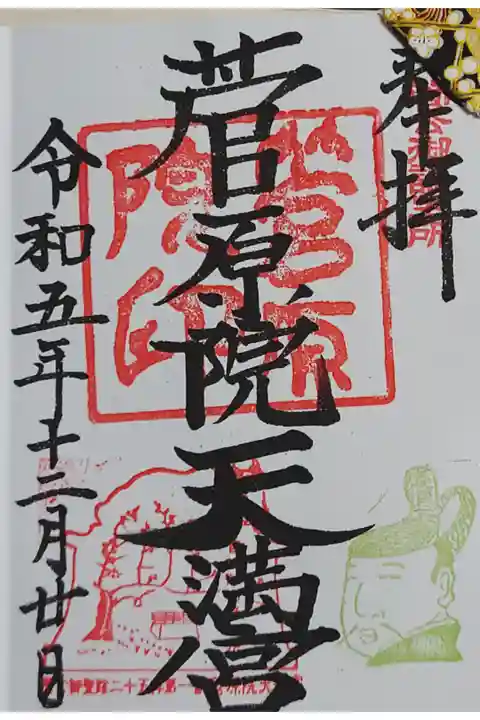 奉拝
菅原院天満宮
菅原院印
令和五年十二月廿日